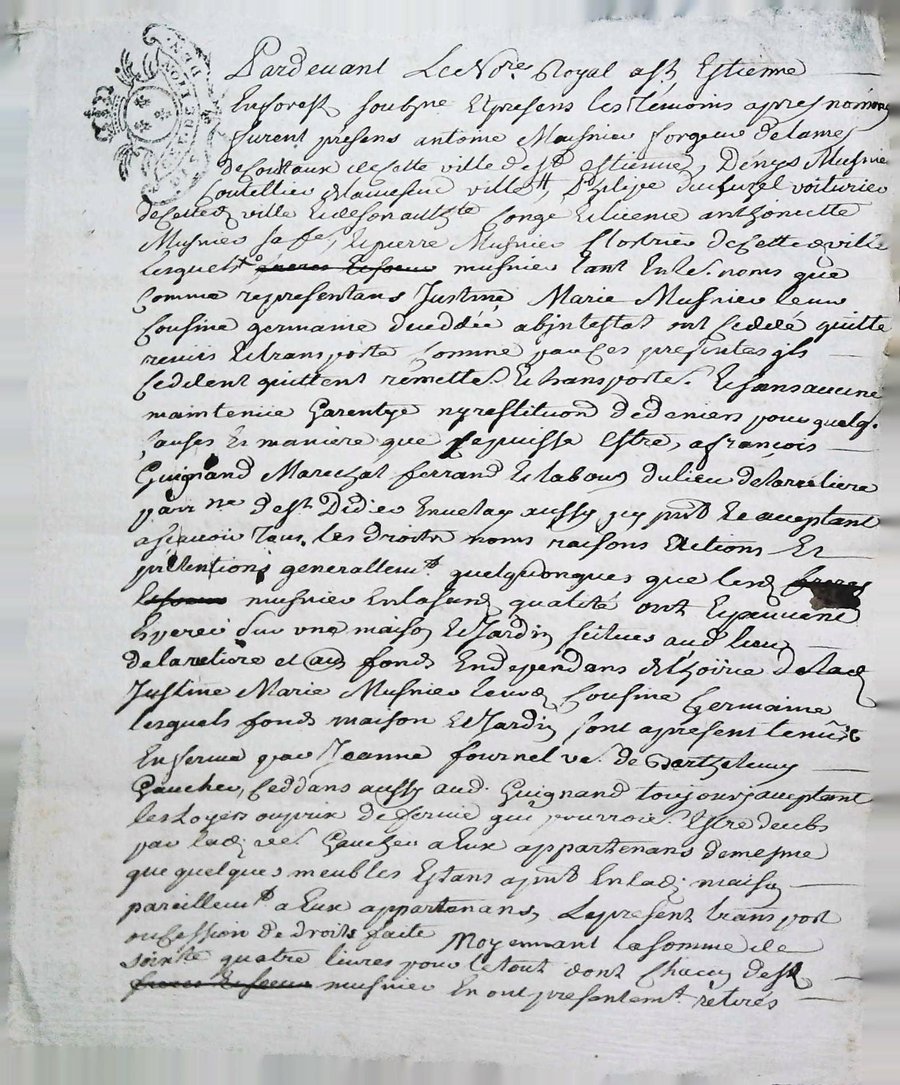 Pardevant Le No.re Royal a St Estienne
En forest soubsne Et presens les Témoins apres nommes
furent presens antoine Musnier forgeur de lames
de Couteaux de cette ville de St estienne, Dénys Musnier
Coutellier de la mesme ville, Philipe voiturier
de cette d. ville Et de son authte Congé Et licence anthoinette
Musnier sa fe, Et pierre Musnier de Cette d ville
lesquels freres Et soeur musnier tant En les. noms que
Comme representans Justine Marie Musnier leur
Cousine germaine deceddée abintestat ont Ceddé quitté
remis Et transporté Comme par Ces presentes ils
Ceddent quittent remettet Et transportet. Et sans aucune
maintenüe Garentye ny restitution de deniers pour quelq.
causes Et maniere que Ce puisse Estre, a françois
Guignand Marechal ferrand Et labour du lieu de
parr ne de St Didier En velay aussy icy pnt Et acceptant
ascavoir Tous les droits noms raisons Actions Et
prétentions generallemt quelquonques que lesd freres
Et soeur musnier En lasusd qualité ont Et peuvent
avoir Sur une maison Et Jardin scitues aud lieu
de et aux fonds En dependans de la d
Justine Marie Musnier leurd Cousine Germaine
lesquels fonds maison Et Jardin sont apresent tenus
En ferme par Jeanne fournel ve. de Barthelemy
Gaucher, Ceddans aussy aud. Guignand toujours acceptant
les Loyers ou prix de ferme qui pourroit Estre deubs
par lad. ve. Gaucher a Eux appartenans de mesme
que quelques meubles Estans apnt En lad. maison
pareillemt a Eux appartenans, Le present transport
ou Cession de droits faite Moyennant la somme de
soixte quatre livres pour le tout dont Chacun desd
freres Et soeur musnier En ont presentemt. retirés